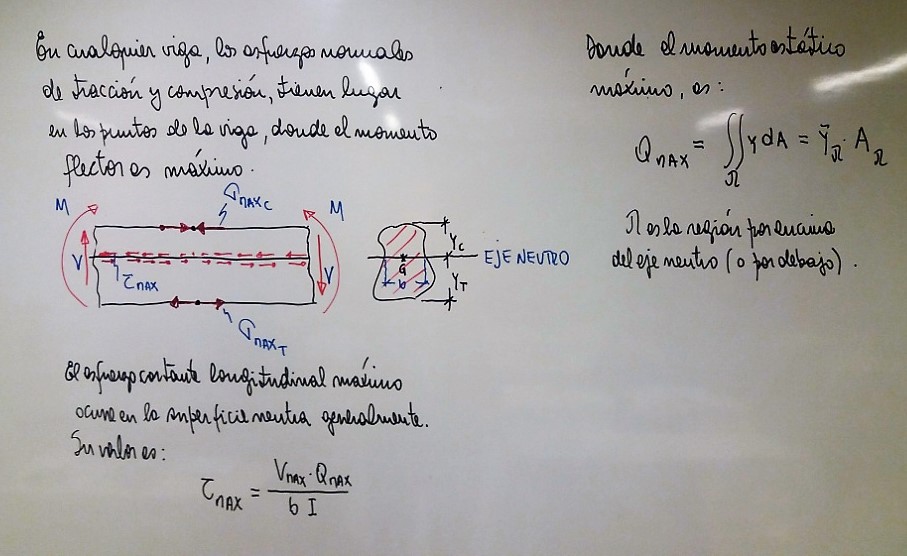 En cualquier viga, los esfuerzos normales
de tracción y compresión, tienen lugar
en los puntos de la viga, donde el momento
flector es máximo.
σMAXC
M
M
V
V
τMAX
σMAXT
YC
G
b
YT
EJE NEUTRO
El esfuerzo cortante longitudinal máximo
ocurre en la superficie neutra generalmente.
Su valor es:
τMAX = VMAX · QMAX / b I
Donde el momento estático
máximo, es:
QMAX = ∬Ω Y dA = ȲΩ · AΩ
Ω es la región por encima
del eje neutro (o por debajo).